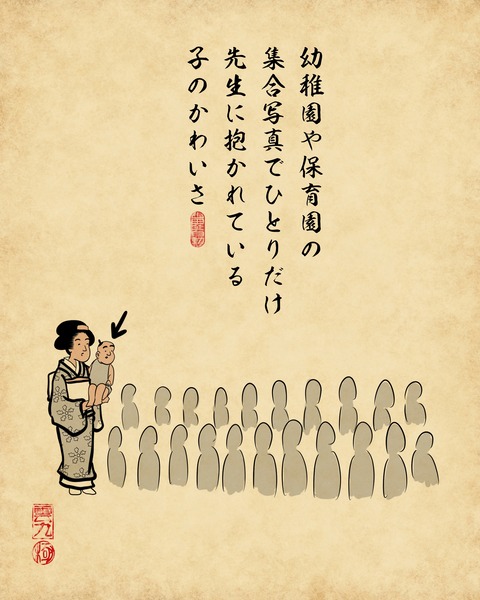 幼稚園や保育園の
集合写真でひとりだけ
先生に抱かれている
子のかわいさ